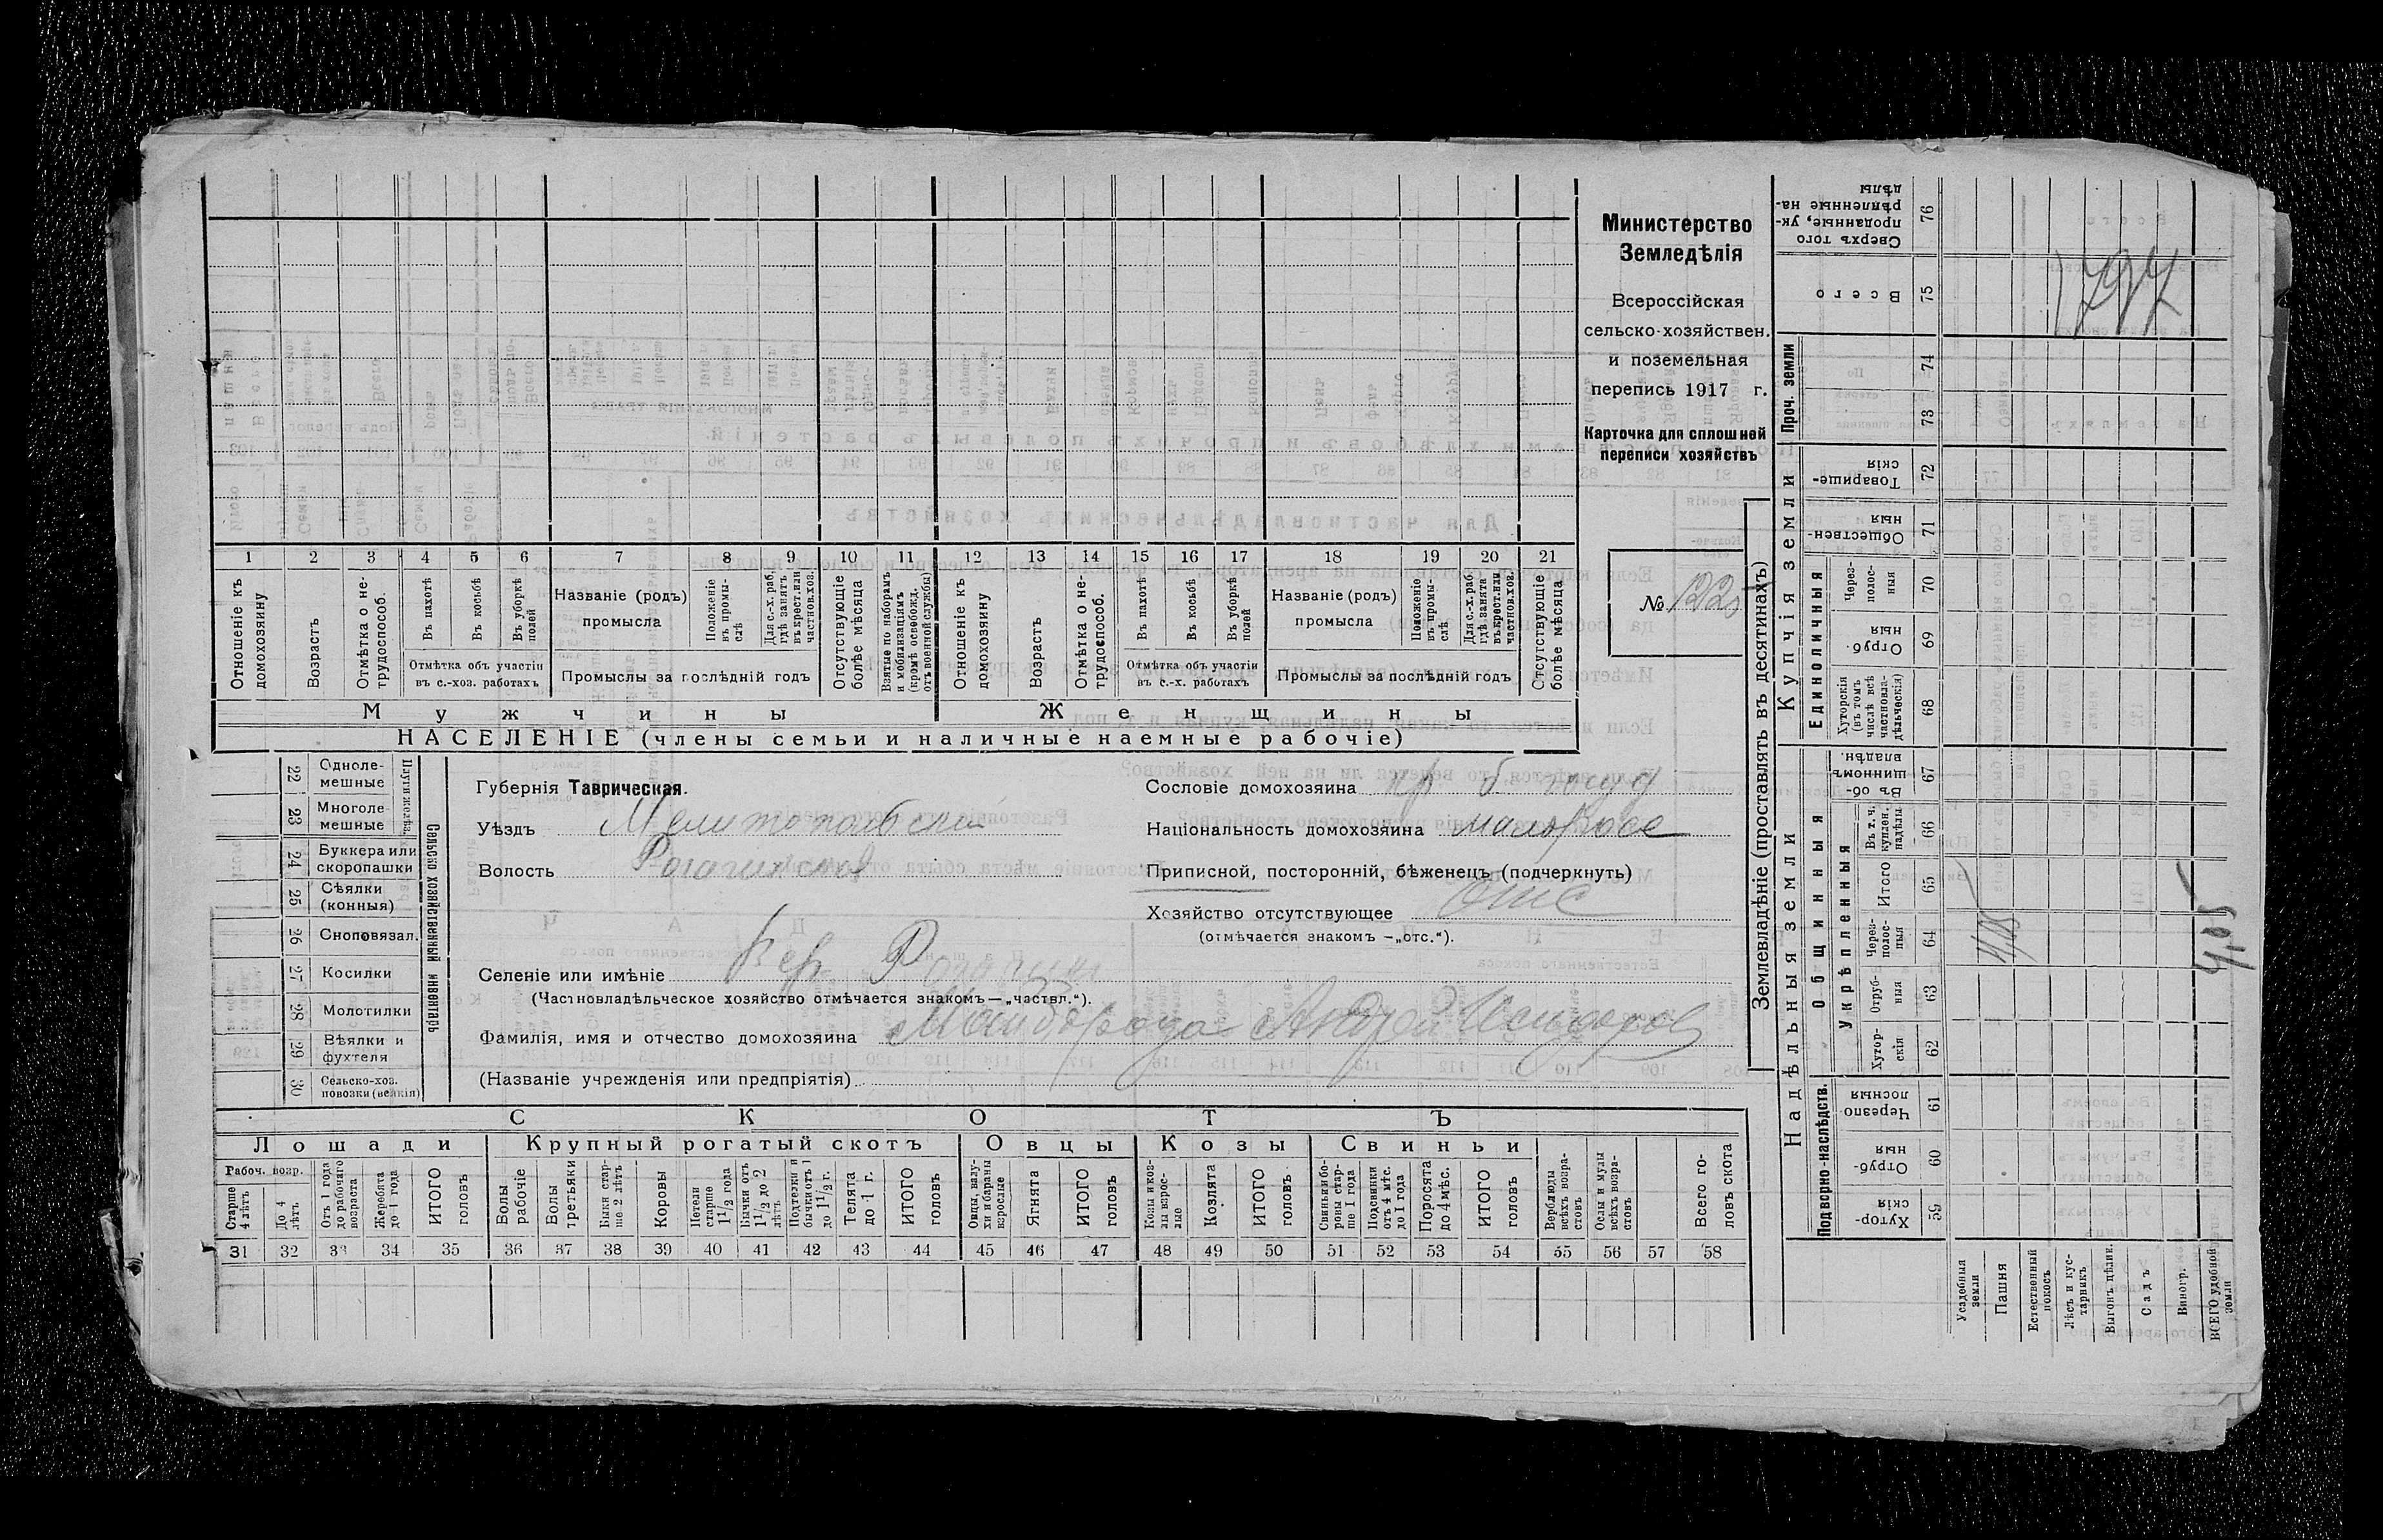 Министерство
Земледѣлія
Всероссійская
сельско-хозяйствен.
и поземельная
перепись 1917 г.
Карточка для сплошной
переписи хозяйствъ
№ 122
1 2 3 4 5 6 7 8 9 10 11 12 13 14 15 16 17 18 19 20 21
Отношеніе къ домохозяину
Возрастъ
Отмѣтка о не-трудоспособ.
Въ пахотѣ
Въ косьбѣ
Въ уборкѣ полей
Отмѣтка объ участіи
въ с.-хоз. работахъ
Названіе (родъ)
промысла
Положеніе въ промы-слѣ
Для с.-х. раб. гдѣ занятъ въ крест. или частнов. хоз.
Промыслы за послѣдній годъ
Отсутствующіе болѣе мѣсяца
Взятые по наборамъ и мобилизаціямъ (кромѣ освобожд. отъ военной службы)
Отношеніе къ домохозяину
Возрастъ
Отмѣтка о не-трудоспособ.
Въ пахотѣ
Въ косьбѣ
Въ уборкѣ полей
Отмѣтка объ участіи
въ с.-х. работахъ
Названіе (родъ)
промысла
Положеніе въ промы-слѣ
Для с.-х. раб. гдѣ занята въ крест. или частнов. хоз.
Промыслы за послѣдній годъ
Отсутствующіе болѣе мѣсяца
Мужчины
Женщины
НАСЕЛЕНІЕ (члены семьи и наличные наемные рабочіе)
22 Одноле-мешные
23 Многоле-мешные
Плуги желѣз.
24 Буккера или скоропашки
25 Сѣялки (конныя)
26 Сноповязал.
27 Косилки
28 Молотилки
29 Вѣялки и фухтеля
30 Сельско-хоз. повозки (всякія)
Сельско хозяйственный инвентарь
Губернія Таврическая.
Уѣздъ Мелитопольскій
Волость Рогачикская
Селеніе или имѣніе Вер Рогачикъ
(Частновладѣльческое хозяйство отмѣчается знакомъ—„частвл.“).
Фамилія, имя и отчество домохозяина Майборода Андрей Исидоров
(Названіе учрежденія или предпріятія)
Сословіе домохозяина кр б госуд
Національность домохозяина малоросс
Приписной, посторонній, бѣженецъ (подчеркнуть)
Хозяйство отсутствующее отс
(отмѣчается знакомъ —„отс.“).
СКОТЪ
Лошади
Крупный рогатый скотъ
Овцы
Козы
Свиньи
Рабоч. возр.
Старше 4 лѣтъ
До 4 лѣтъ
Отъ 1 года до рабочаго возраста
Жеребята до 1 года
ИТОГО головъ
Волы рабочіе
Волы третьяки
Быки стар-ше 2 лѣтъ
Коровы
Нетели старше 1 1/2 года
Бычки отъ 1 1/2 до 2 лѣтъ
Подтелки и бычки отъ 1 до 1 1/2 г.
Телята до 1 г.
ИТОГО головъ
Овцы, валу-хи и бараны взрослые
Ягнята
ИТОГО головъ
Козы и коз-лы взрос-лые
Козлята
ИТОГО головъ
Свиньи и бо-ровы стар-ше 1 года
Подсвинки отъ 4 мѣс. до 1 года
Поросята до 4 мѣс.
ИТОГО головъ
Верблюды всѣхъ возра-стовъ
Ослы и мулы всѣхъ возра-стовъ
Всего го-ловъ скота
31 32 33 34 35 36 37 38 39 40 41 42 43 44 45 46 47 48 49 50 51 52 53 54 55 56 57 58
Землевладѣніе (проставлять въ десятинахъ)
Надѣльныя земли
Купчія земли
Проч. земли
Подворно-наслѣдств.
Общинныя
Укрѣпленныя
Единоличныя
Сверхъ того проданные, ук-рѣпленные на-дѣлы 76
Всего 75
74
73
Товарище-скія 72
Обществен-ныя 71
Через-полос-ныя 70
Отруб-ныя 69
Хуторскія (въ томъ числѣ всѣ частновла-дѣльческія) 68
Въ об-щинномъ владѣн. 67
Въ т. ч. куплен. надѣлы 66
Итого 65
Через-полос-ныя 64
Отруб-ныя 63
Хутор-скія 62
Черезпо-лосныя 61
Отруб-ныя 60
Хутор-скія 59
Усадебныя земли
Пашня
Естественный покосъ
Лѣсъ и кус-тарникъ
Выгонъ цѣлин.
Садъ
Виногр.
ВСЕГО удобной земли